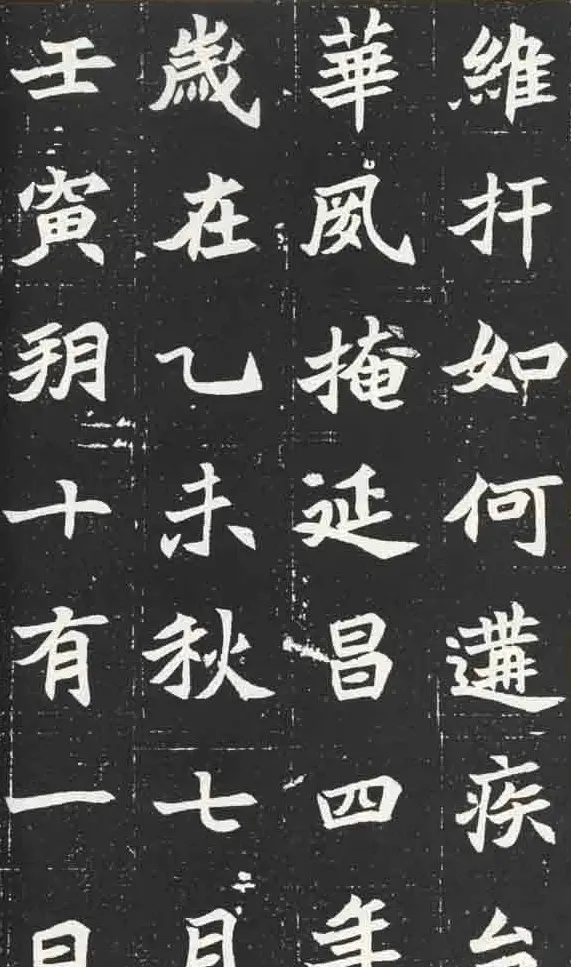 維扞如何遘疾台
華夙掩延昌四年
歲在乙未秋七月
壬寅朔十有一日